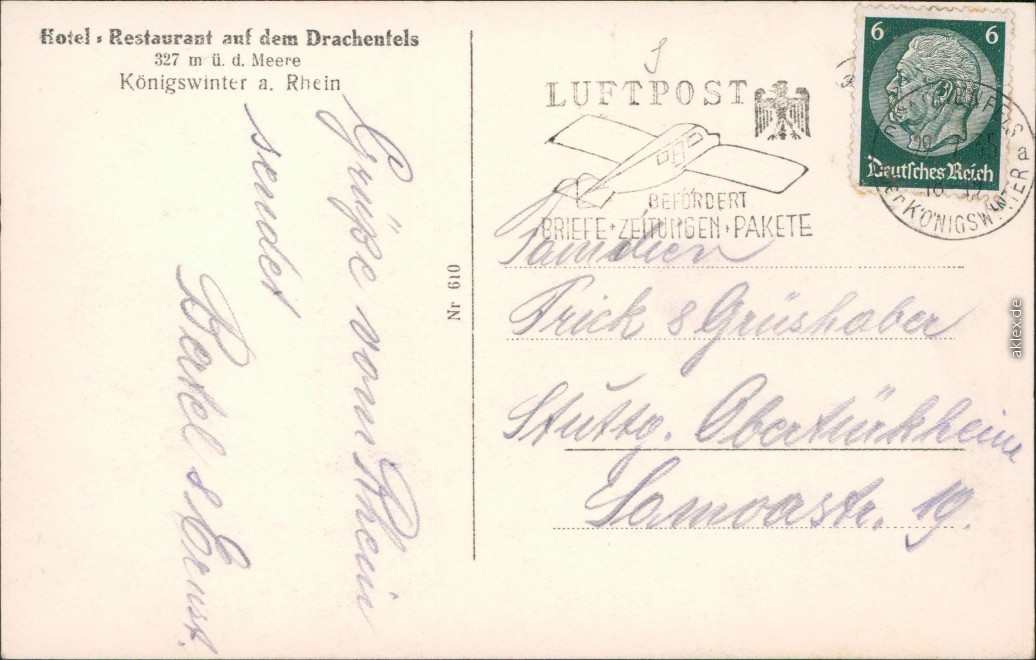 Hotel-Restaurant auf dem Drachenfels
327 m ü. d. Meere
Königswinter a. Rhein
Grüße vom Rhein
sendet
& Ernst.
Nr 610
LUFTPOST
BEFÖRDERT
BRIEFE+ZEITUNGEN+PAKETE
6 6
Deutsches Reich
KÖNIGSWINTER
a
Familien
Frick & Grüshaber
Stuttg. Obertürkheim
Samoastr. 19.
aklex.de